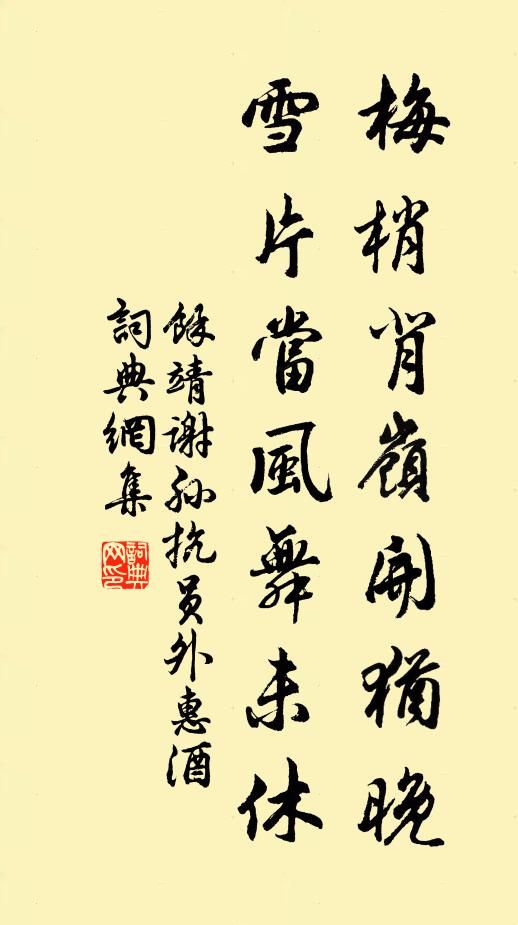 梅梢背嶺開猶晚
雪片當風舞未休
餘靖謝孙抗员外惠酒
詞典網集
詞典网印